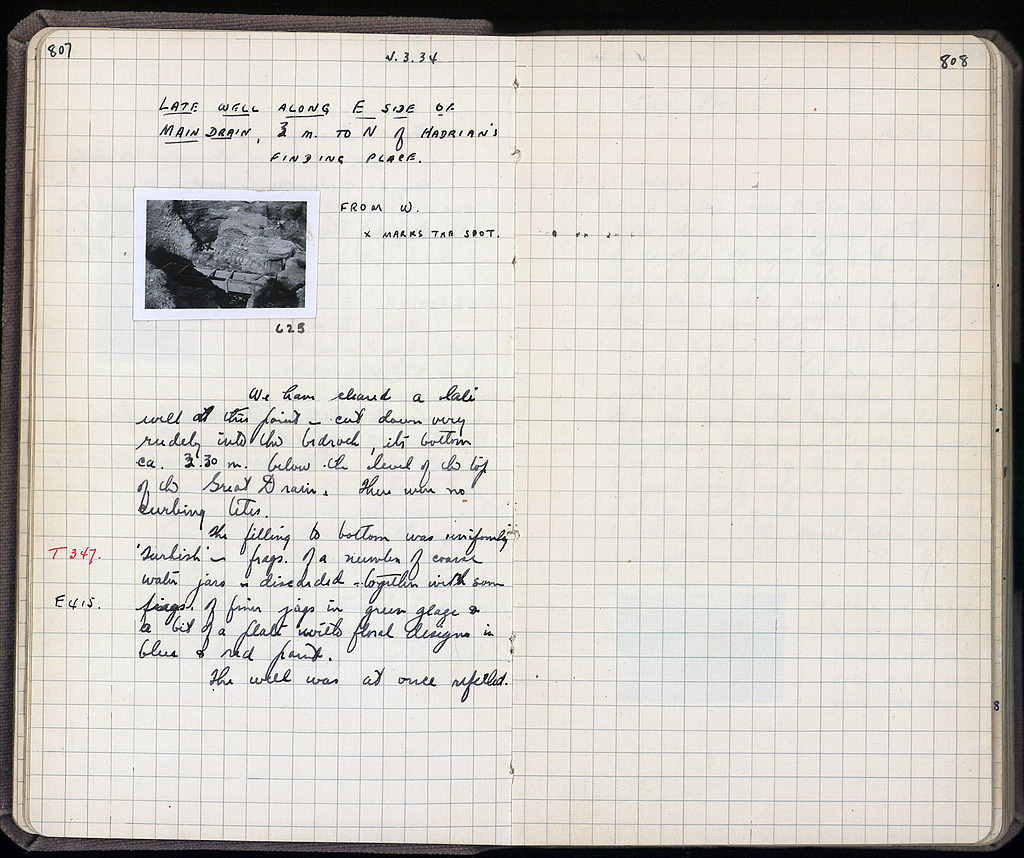 807
V.3.34
808
LATE WELL ALONG E SIDE OF
MAIN DRAIN, 3 m. TO N of HADRIAN'S
FINDING PLACE.
FROM W.
x MARKS THE SPOT.
625
We have cleared a late
well at this point – cut down very
rudely into the bedrock, its bottom
ca. 3.30 m. below the level of the top
of the Great Drain. There were no
curbing tiles.
The filling to bottom was uniformly
T 347.
'Turkish' – frags. of a number of coarse
water jars – discarded – together with some
E 415.
frags. of finer jugs in green glaze &
a bit of a plate with floral designs in
blue & red paint.
The well was at once refilled.
8